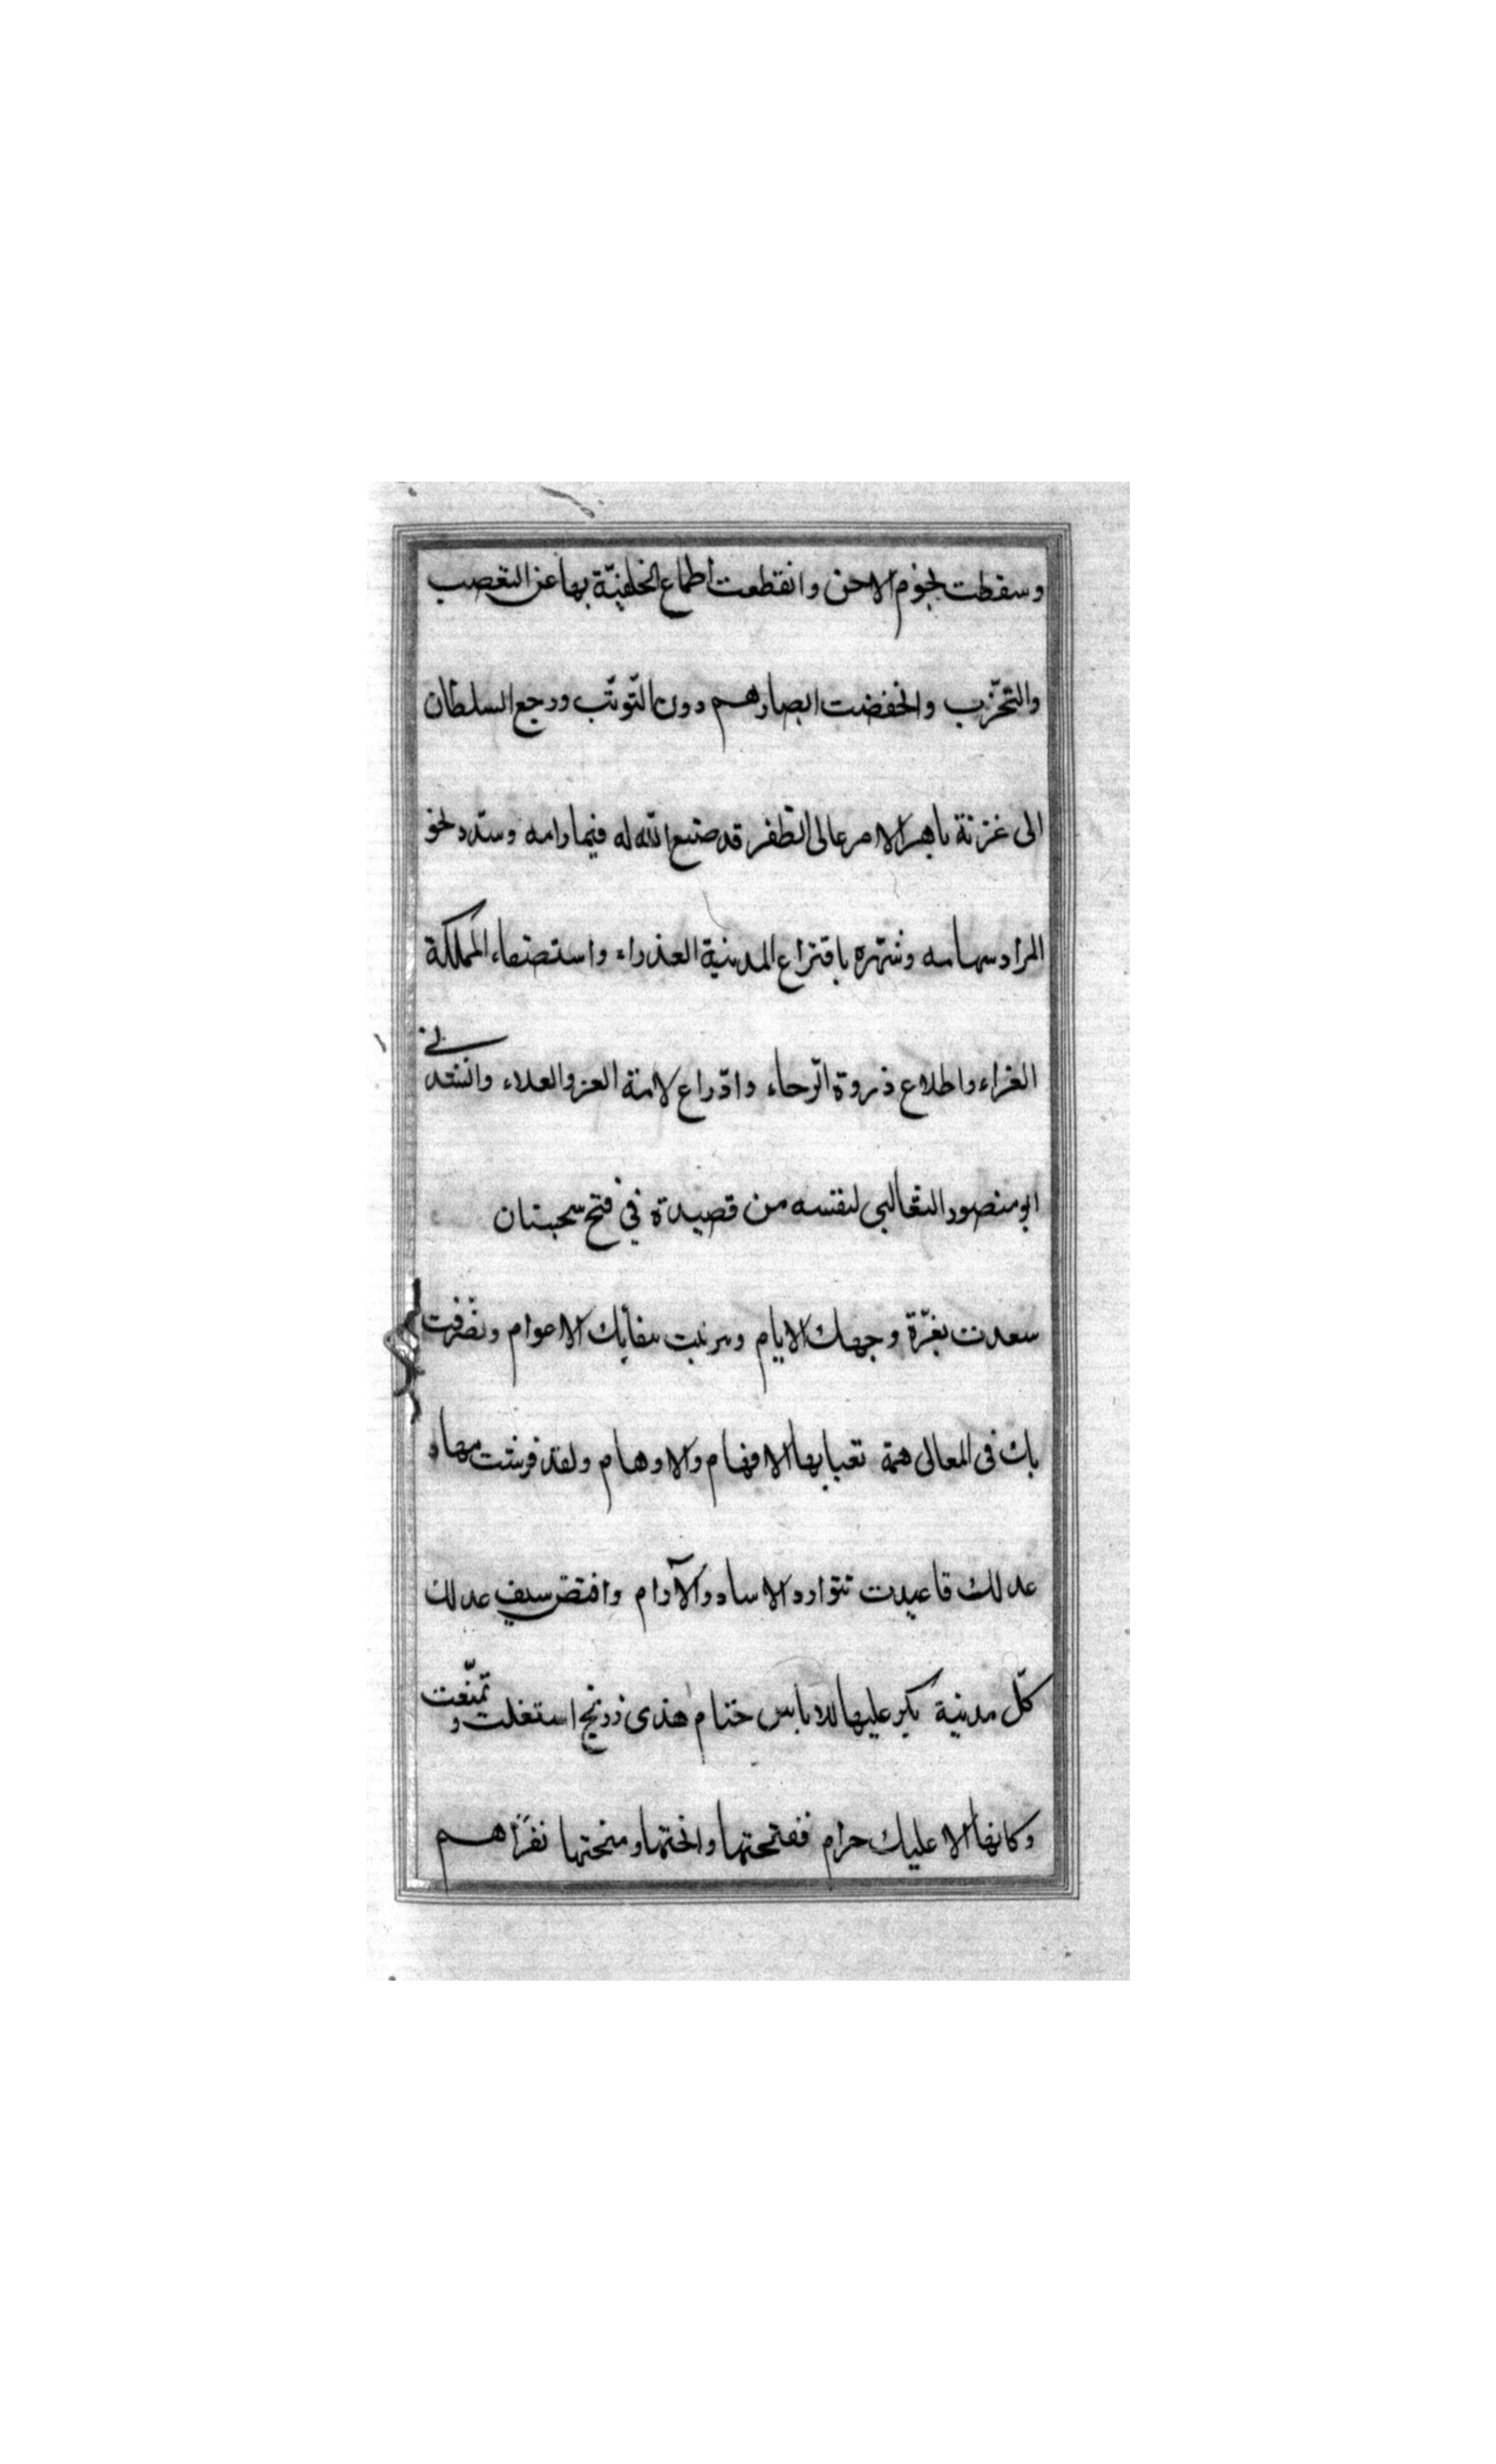 وسقطت نجوم الاحن وانقطعت أطماع الخلفيّة بها عن التعصب
والتحزّب وانخفضت ابصارهم دون التّوثّب ورجع السلطان
الى غزنة باهر الامر عالى الظفر قد صنع الله له فيما رامه وسدد نحو
المراد سهامه وشهّره بافتراع المدينة العذراء واستصفاء المملكة
الغراء واطلاع ذروة الرّجاء وادّراع لامة العز والعلاء وانشدنى
ابو منصور الثعالبى لنفسه من قصيدة في فتح سجستان
سعدت بغرّة وجهك الايام وتزينت ببقائك الاعوام وتصرّفت
بك فى المعالى همّة تعيا بها الافهام والاوهام ولقد فرشت مهاد
عدلك فاغيدت تتوارد الاساد والآرام وافتض سيف عدلك
كلّ مدينة بكر عليها للاباس ختام هذى زرنج استغلت وتمنّعت
وكانها الا عليك حرام ففتحتها وانختها ومنحتها نفرا هم